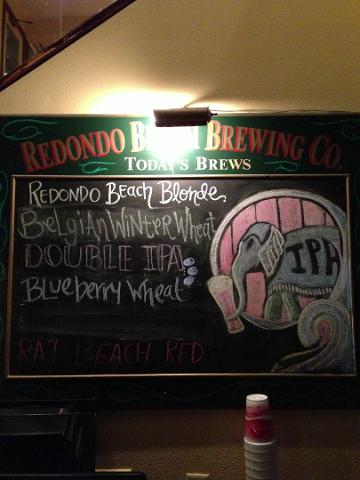 Redondo Beach Brewing Co.
Today's Brews
Redondo Beach Blonde
Belgian Winter Wheat
DOUBLE IPA
Blueberry Wheat
RAT BEACH RED
IPA